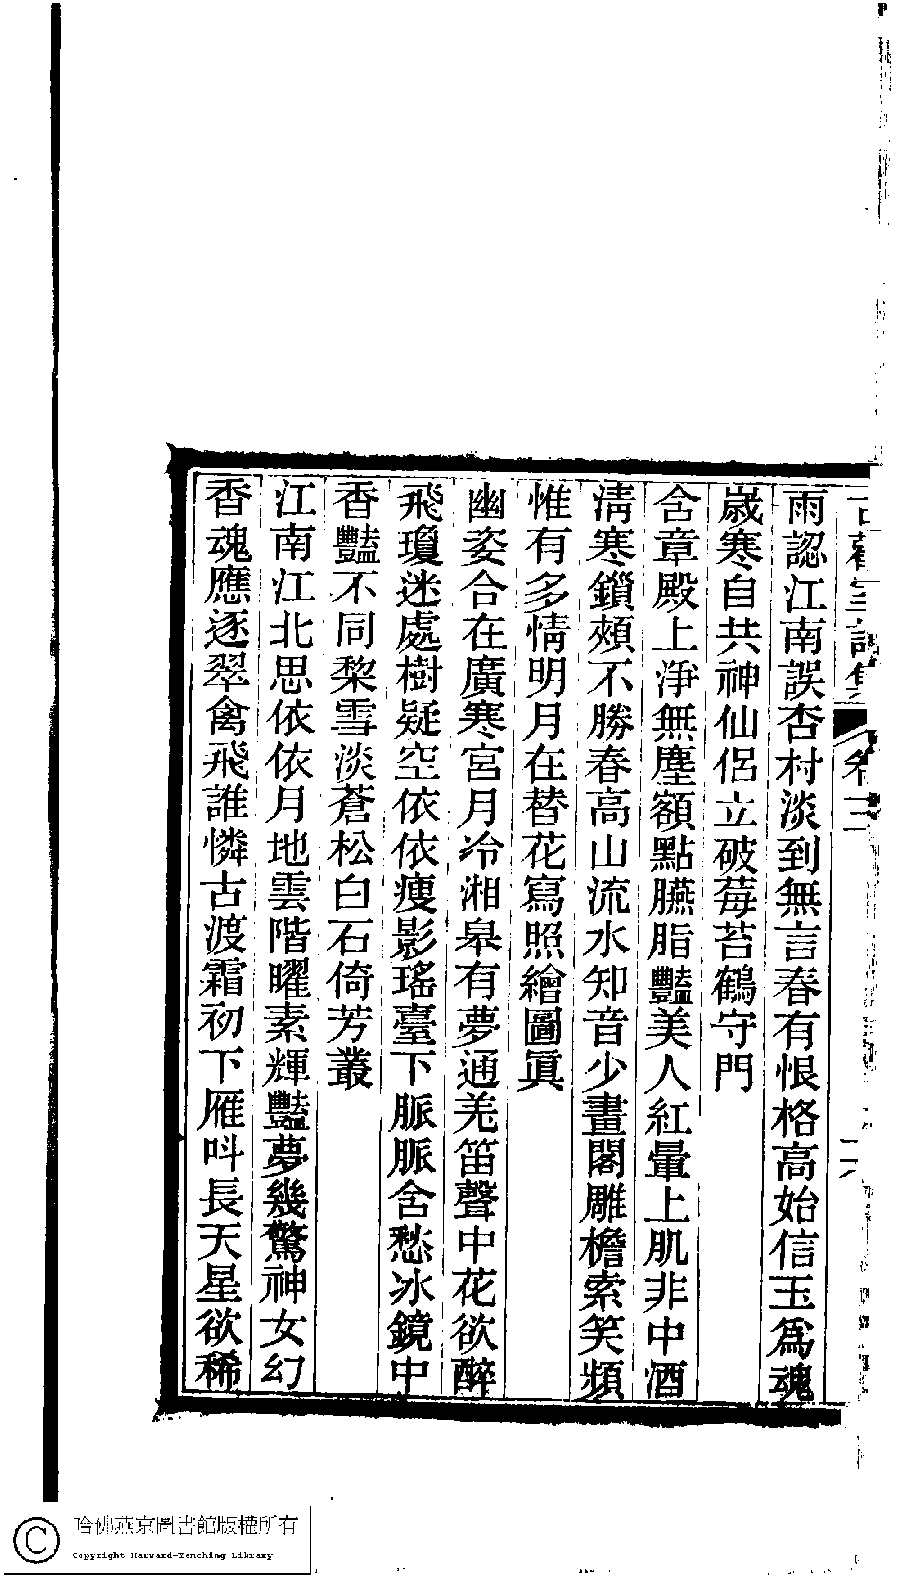 雨認江南誤杏村淡到無言春有恨格高始信玉為魂
歲寒自共神仙侶立破莓苔鶴守門
含章殿上淨無塵額點臙脂豔美人紅暈上肌非中酒
清寒鎖頰不勝春高山流水知音少畫閣雕檐索笑頻
惟有多情明月在替花寫照繪圖眞
幽姿合在廣寒宮月冷湘皋有夢通羌笛聲中花欲醉
飛瓊迷處樹疑空依依瘦影瑤臺下脈脈含愁冰鏡中
香豔不同棃雪淡蒼松白石倚芳叢
江南江北思依依月地雲階曜素輝豔夢幾驚神女幻
香魂應逐翠禽飛誰憐古渡霜初下雁呌長天星欲稀
哈佛燕京圖書館版權所有
Copyright Harvard-Yenching Library